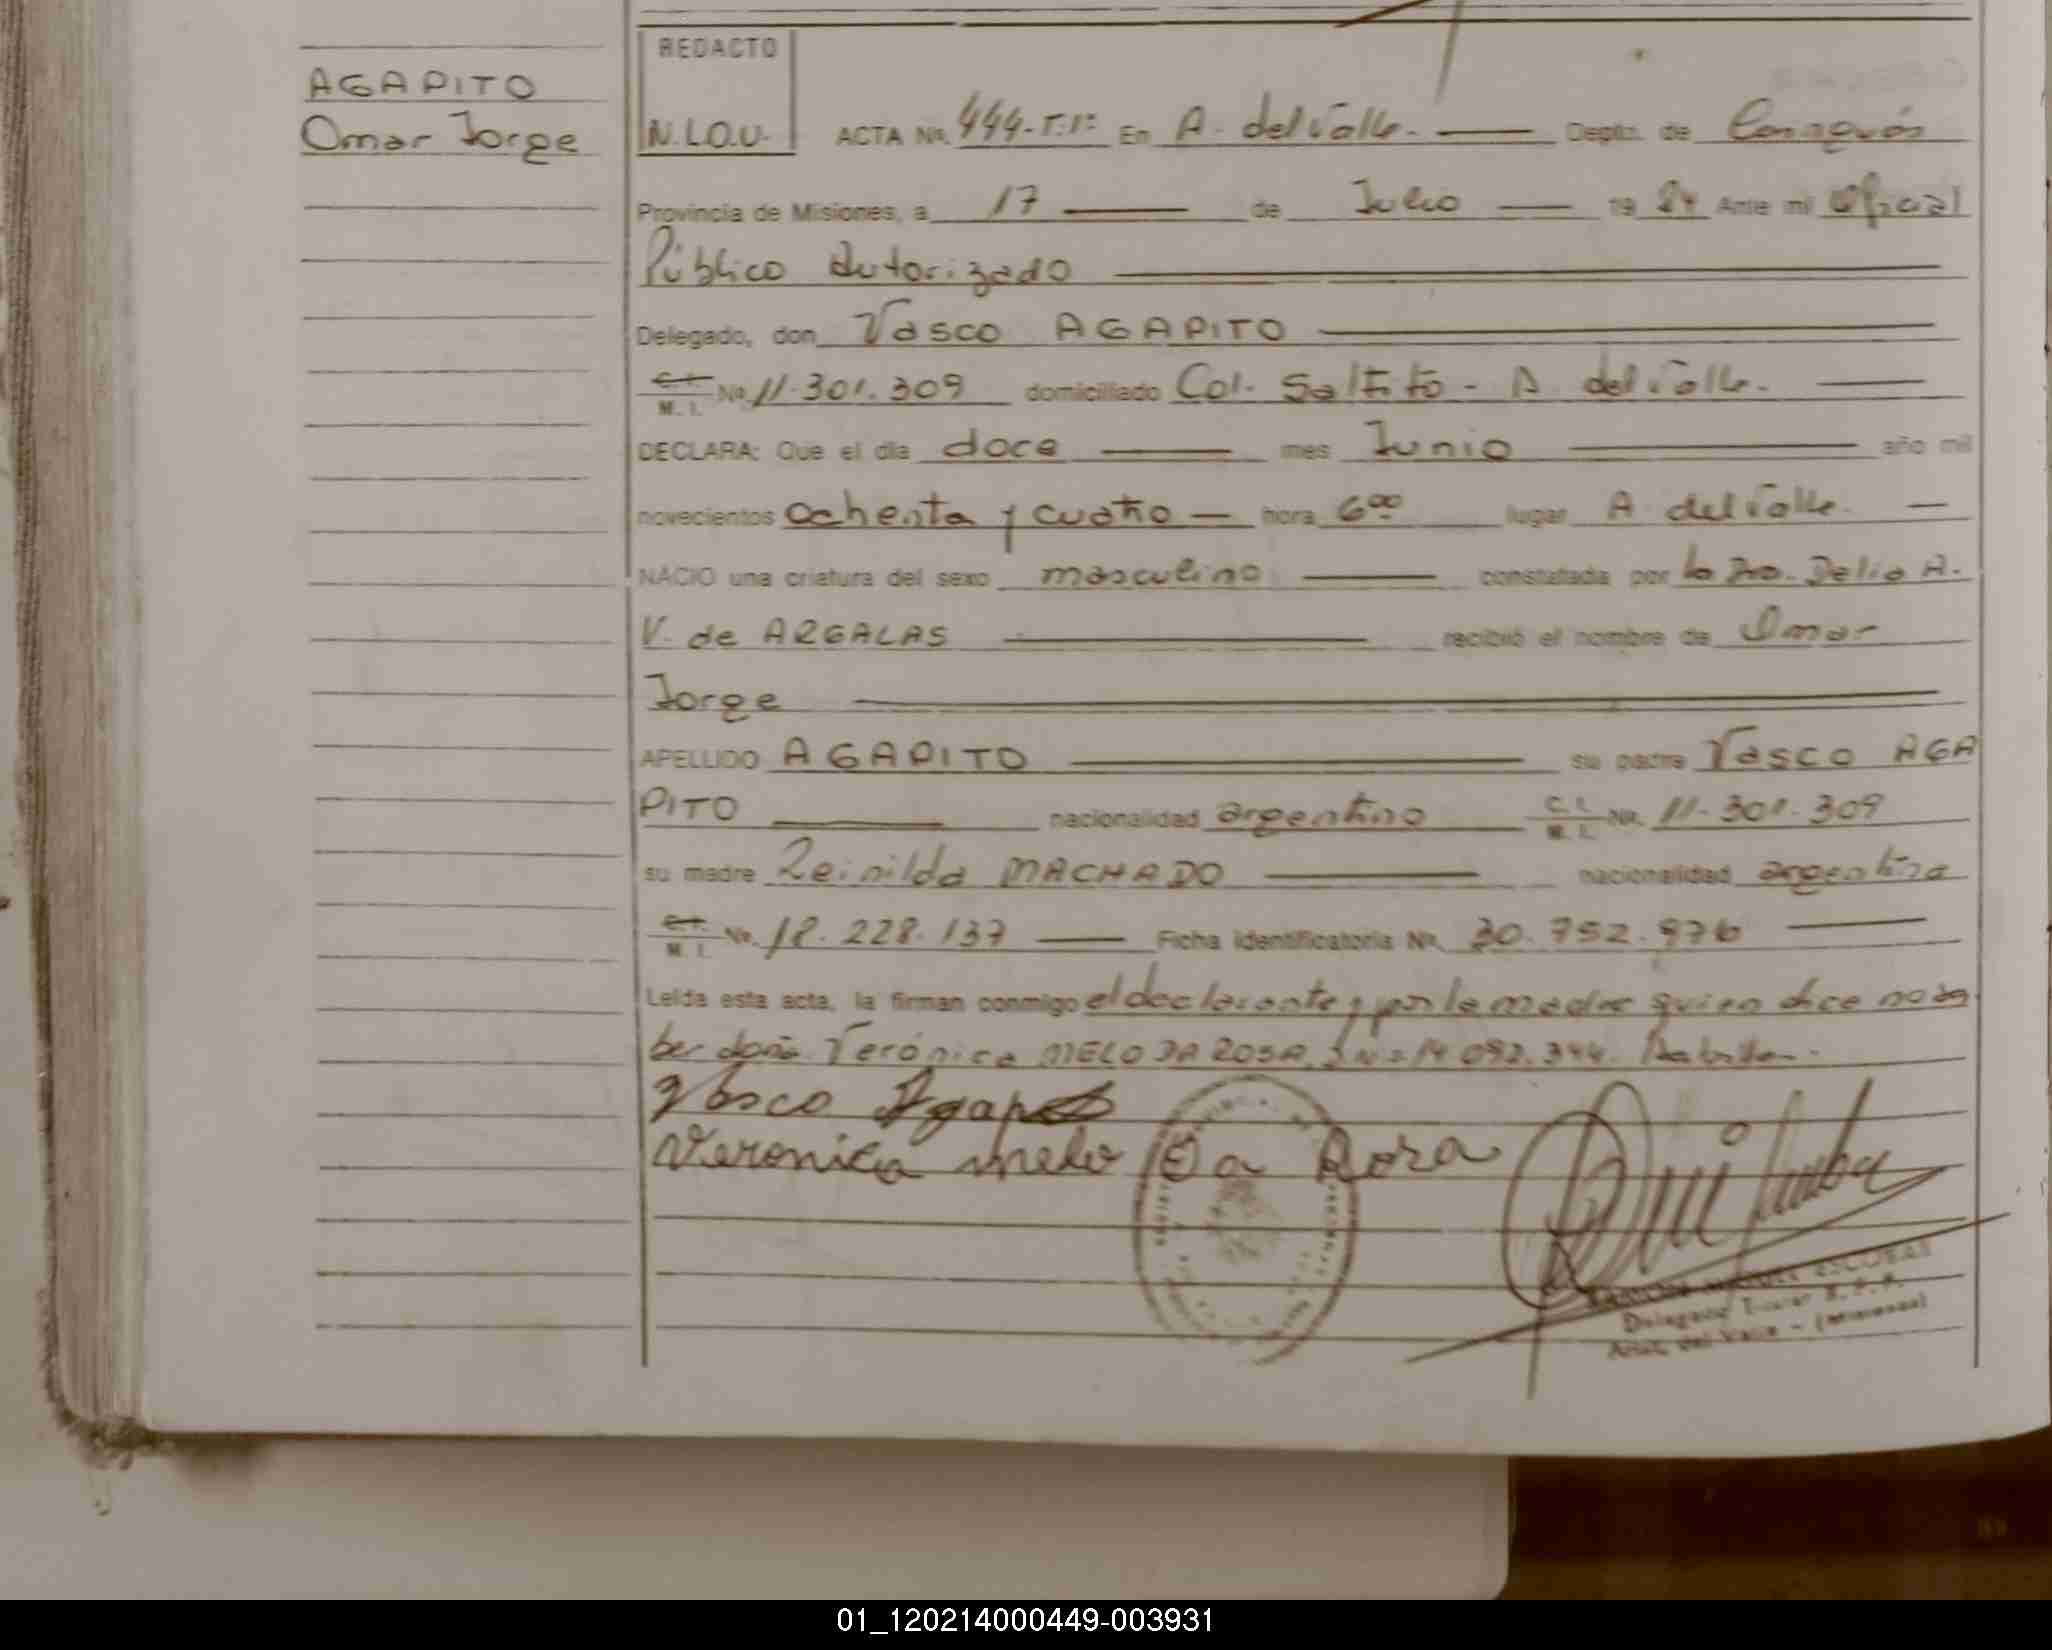 AGAPITO
Omar Jorge
REDACTO
N.L.O.V.
ACTA Nº. 444-T.1º En A. del Valle. Depto. de Cainguás
Provincia de Misiones, a 17 de Julio 19 84 Ante mi Oficial
Público Autorizado
Delegado, don Vasco AGAPITO
C.I. M.I. Nº 11.301.309 domiciliado Col. Saltito - A. del Valle.
DECLARA: Que el día doce mes Junio año mil
novecientos ochenta y cuatro hora 6 00 lugar A. del Valle.
NACIO una criatura del sexo masculino constatada por la Dra. Delia A.
V. de ARGALAS recibió el nombre de Omar
Jorge
APELLIDO AGAPITO su padre Vasco AGA
PITO nacionalidad argentino C.I. M.I. Nº. 11.301.309
su madre Reinilda MACHADO nacionalidad argentina
C.I. M.I. Nº. 18.228.137 Ficha identificatoria Nº 30.752.976
Leída esta acta, la firman conmigo el declarante y por la madre quien dice no sa
ber doña Verónica MELO DA ROSA, 14.092.344.
Vasco Agapito
Veronica melo Da Rosa
ESCOBAR
Delegado Titular R.P.P.
Arist. del Valle - (Misiones)
01_120214000449-003931